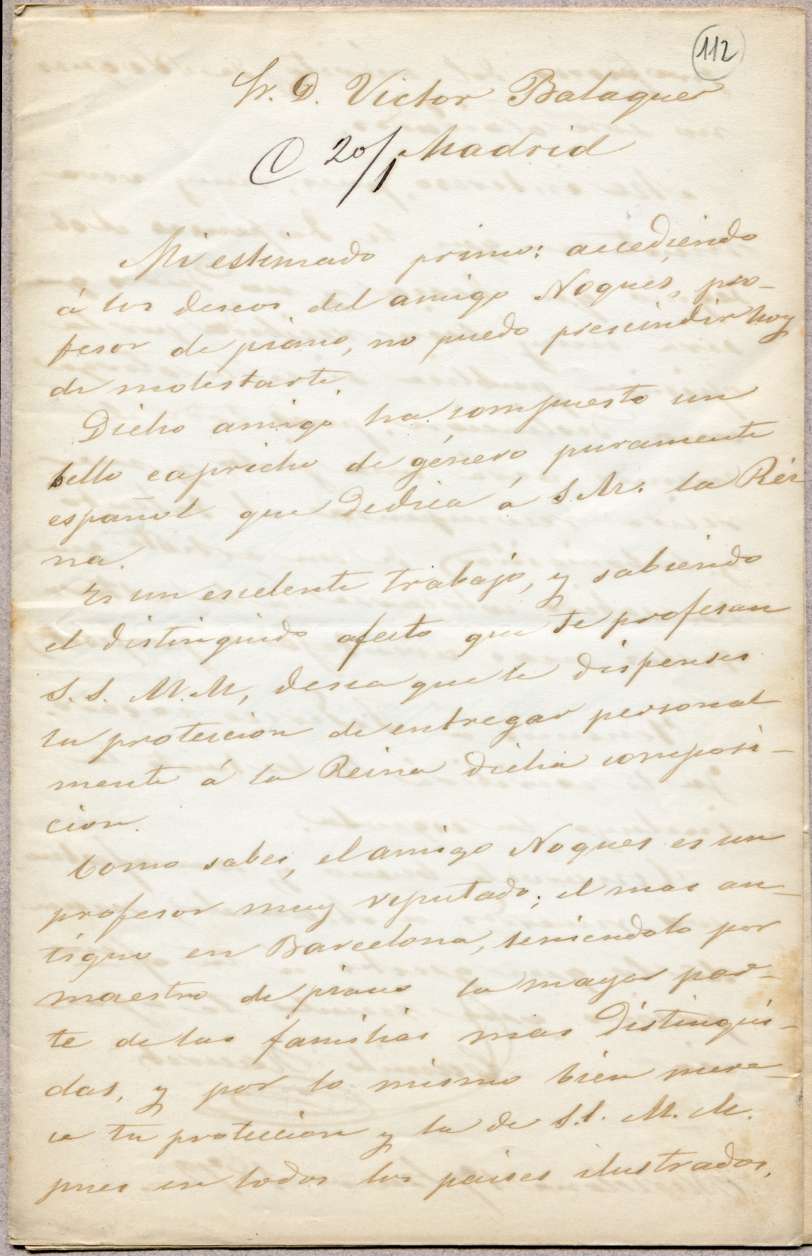 112
Sr. D. Victor Balaguer
C 20/1 Madrid
Mi estimado primo: accediendo
á los deseos del amigo Nogués, pro-
fesor de piano, no puedo prescindir hoy
de molestarte.
Dicho amigo ha compuesto un
bello capricho de género puramente
español que dedica á S.M. la Rei
na.
Es un escelente trabajo, y sabiendo
el distinguido afecto que te profesan
S.S. M.M, desea que le dispenses
tu proteccion de entregar personal
mente á la Reina dicha composi-
cion.
Como sabes, el amigo Nogues es un
profesor muy reputado; el mas an-
tiguo en Barcelona, teniendolo por
maestro de piano la mayor par-
te de las familias mas distingui-
das, y por lo mismo bien mere-
ce tu proteccion y la de S.S. M.M.
pues en todos los paises ilustrados,